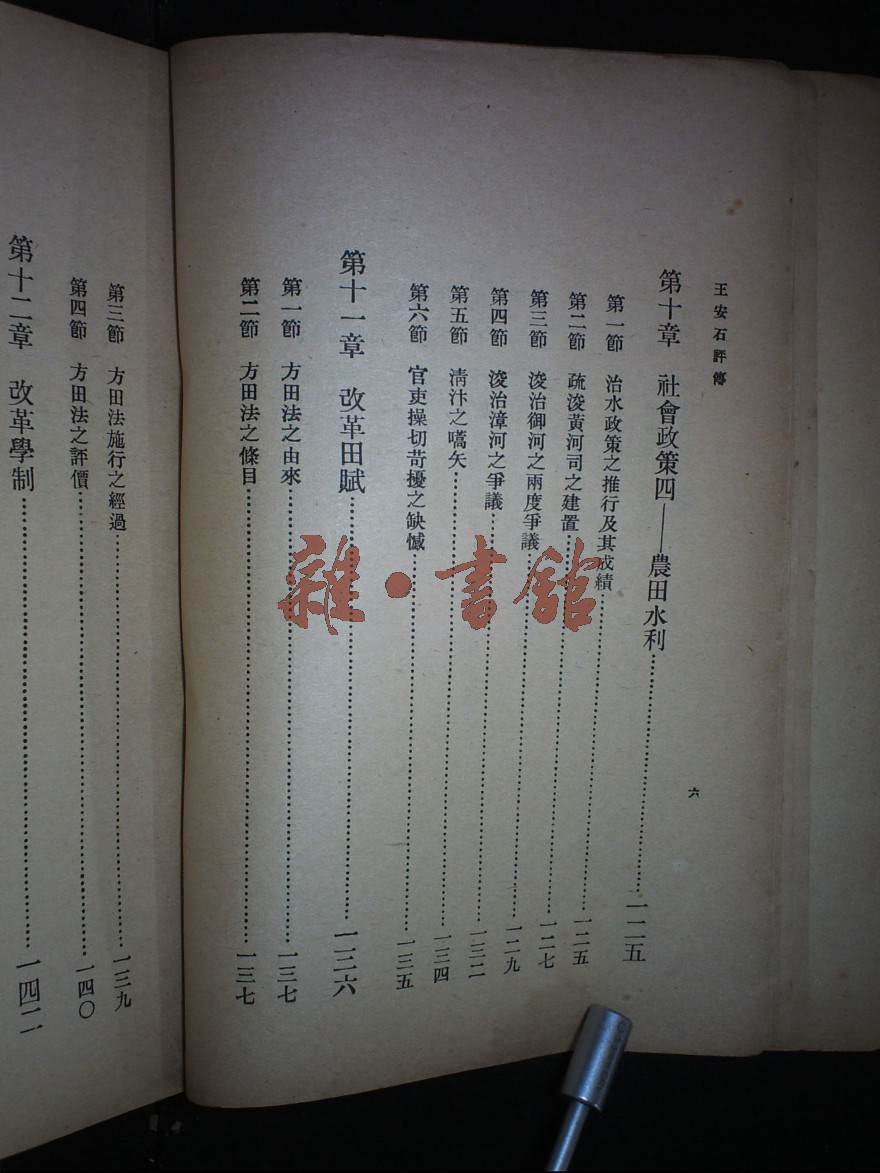 王安石評傳
六
第十章 社會政策四——農田水利……一二五
第一節 治水政策之推行及其成績……一二五
第二節 疏浚黃河司之建置……一二七
第三節 浚治御河之兩度爭議……一二九
第四節 浚治漳河之爭議……一三二
第五節 清汴之嚆矢……一三四
第六節 官吏操切苛擾之缺憾……一三五
第十一章 改革田賦……一三六
第一節 方田法之由來……一三七
第二節 方田法之條目……一三七
第三節 方田法施行之經過……一三九
第四節 方田法之評價……一四〇
第十二章 改革學制……一四二
雜·書館